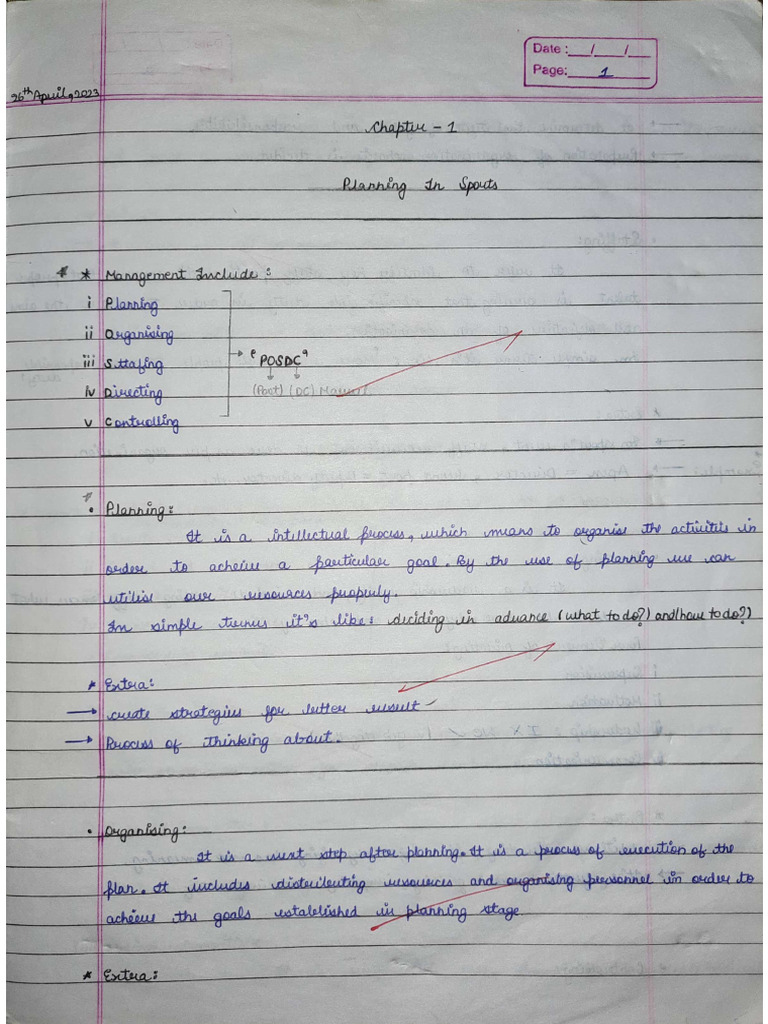 Date : __/__/__
Page: 1
26th April, 2023
Chapter - 1
Planning In Sports
* Management Include :
i Planning
ii Organising
iii Sttafing
iv Directing
v Controlling
"POSDC"
(Post) (DC) Marvel
• Planning:
It is a intellectual process, which means to organise the activities in
order to acheive a particular goal. By the use of planning we can
utilise our resources properly.
In simple terms it's like: deciding in advance (what to do?) and (how to do?)
* Extra:
→ create strategies for better result
→ Process of thinking about.
• Organising:
It is a next step after planning. It is a process of execution of the
plan. It includes distributing resources and organising personnel in order to
acheive the goals established in planning stage.
* Extra: